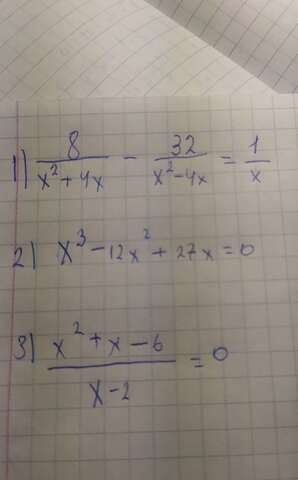 1) 8/(x²+4x) - 32/(x²-4x) = 1/x
2) x³-12x²+27x=0
3) (x²+x-6)/(x-2) = 0